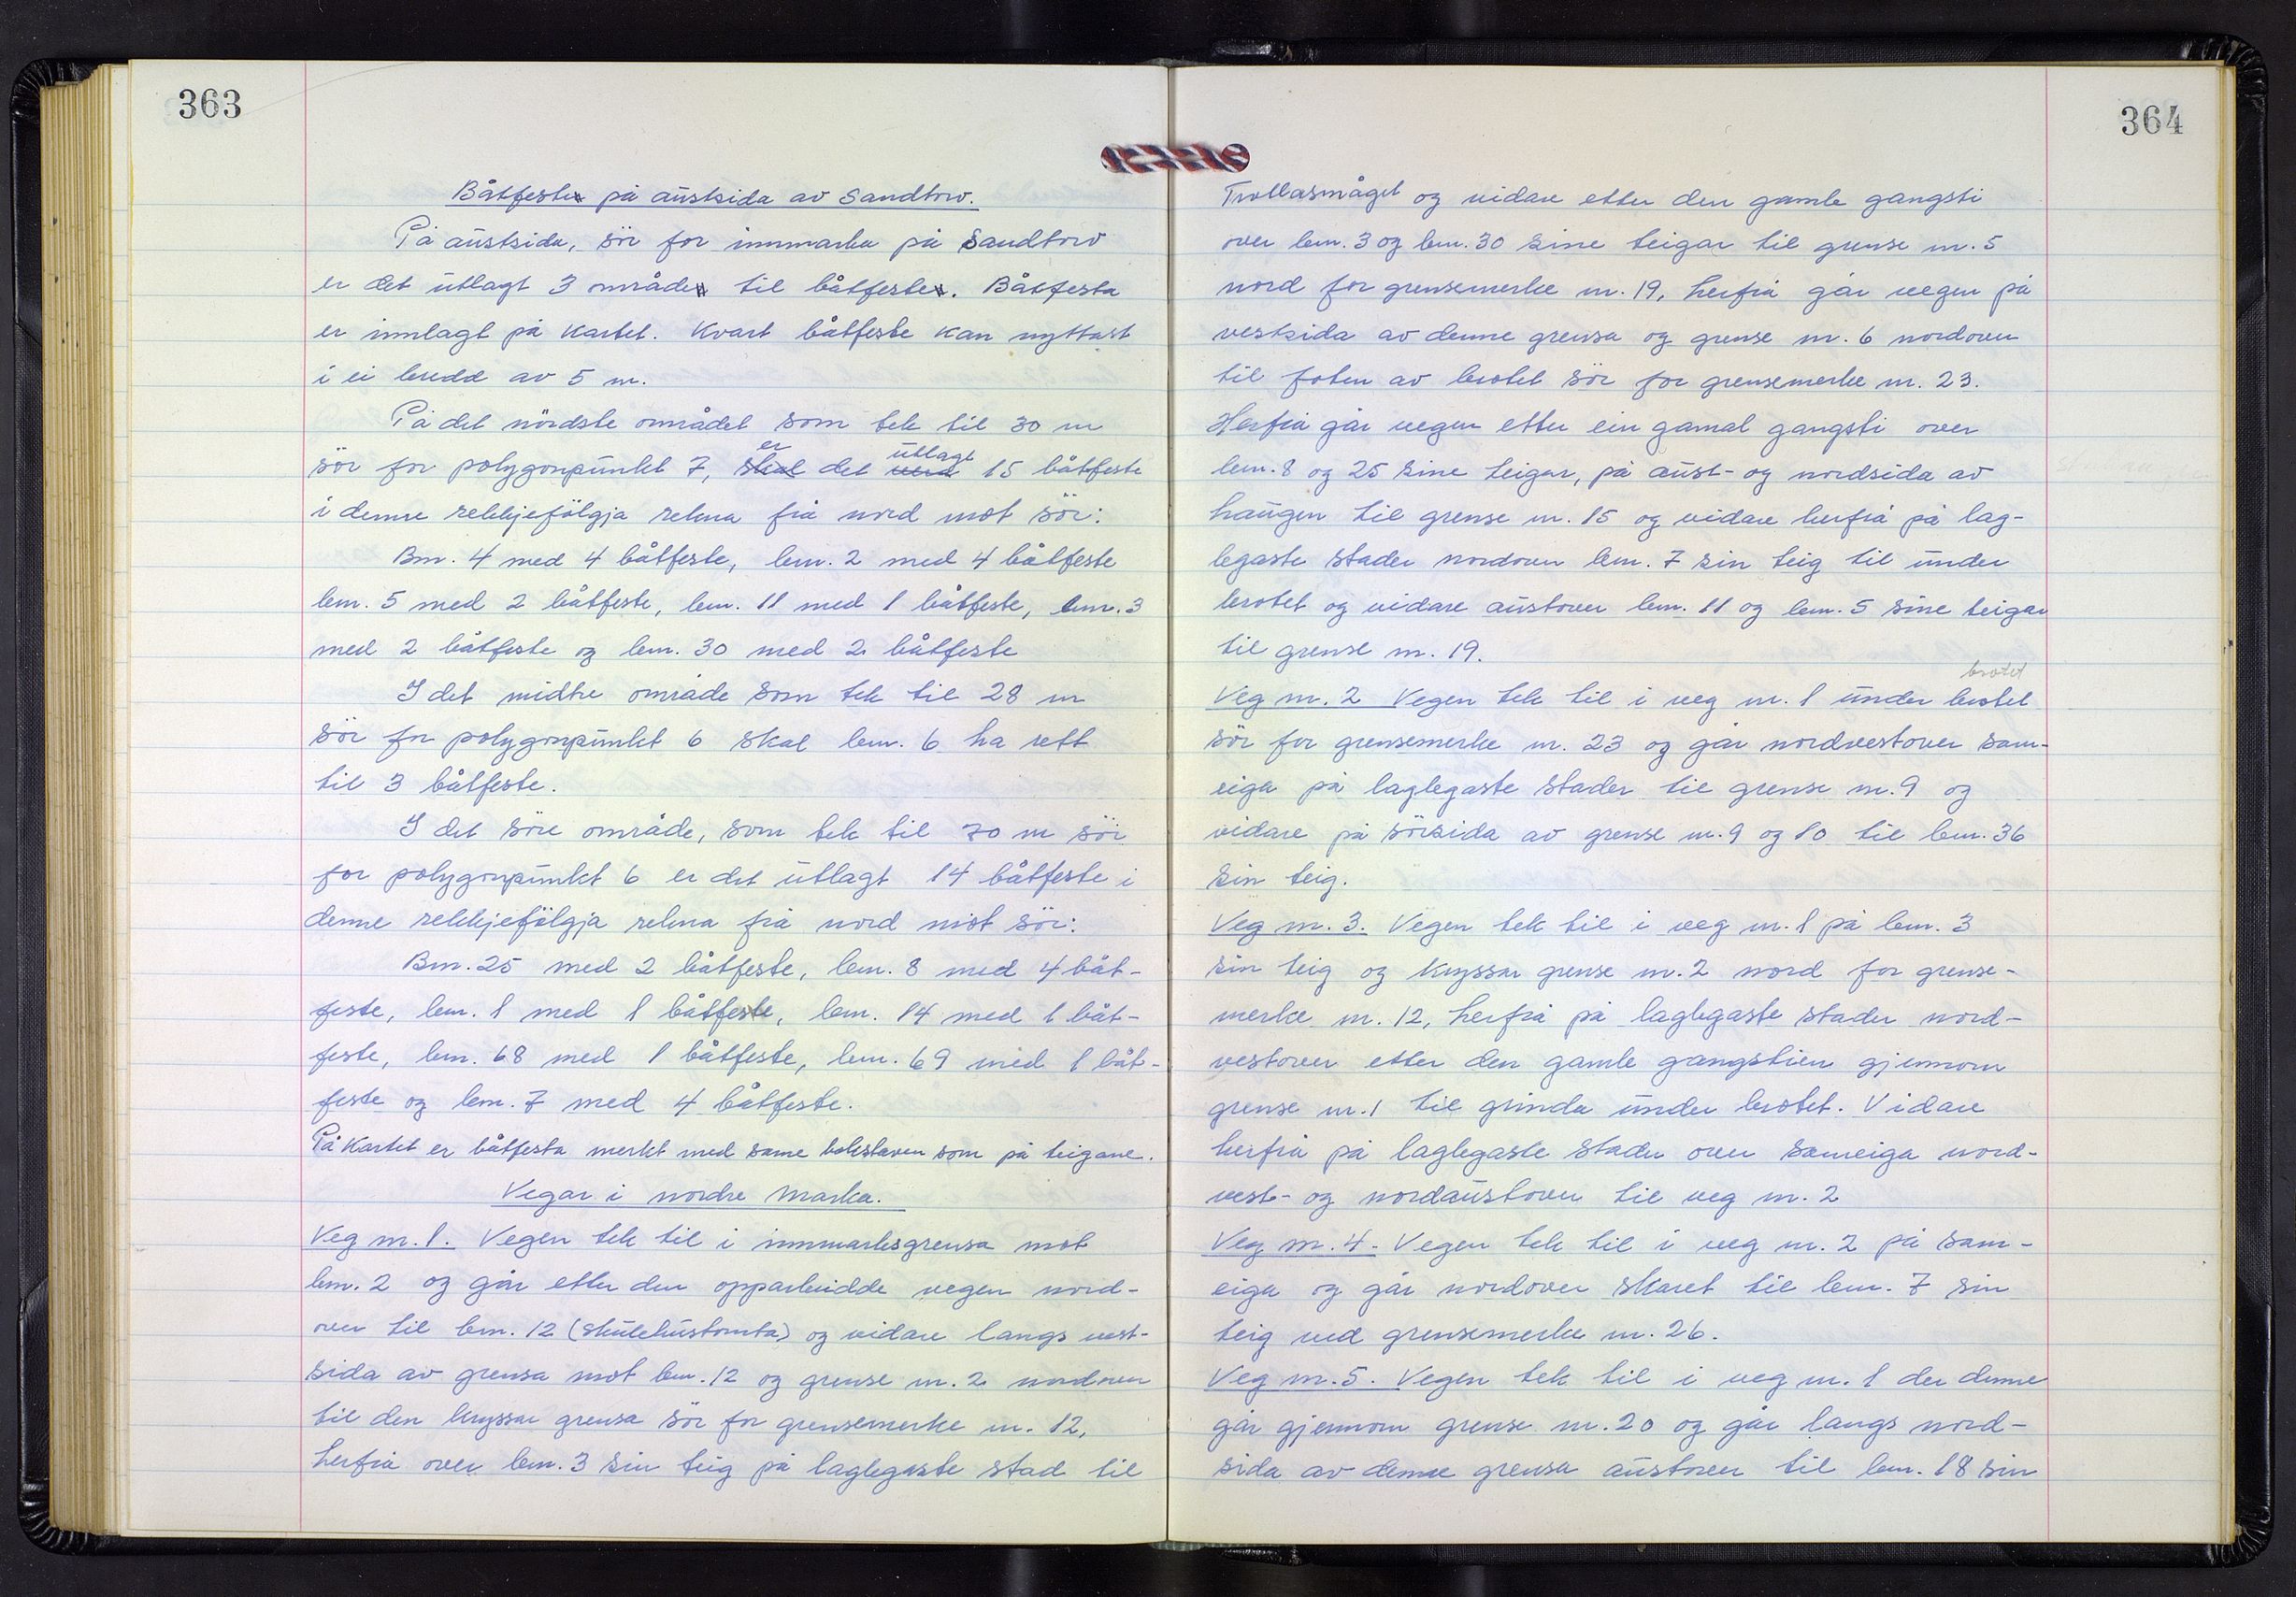 363
Båtfeste på austsida av Sandtorv.
På austsida, sör for innmarka på Sandtorv
er det utlagt 3 område til båtfeste. Båtfesta
er innlagt på kartet. Kvart båtfeste kan nyttast
i ei bredd av 5 m.
På det nördste området som tek til 30 m
sör for polygonpunkt 7, skal er det vera utlagt 15 båtfeste
i denne rekkjefölgja rekna frå nord mot sör:
Bnr. 4 med 4 båtfeste, bnr. 2 med 4 båtfeste
bnr. 5 med 2 båtfeste, bnr. 11 med 1 båtfeste, bnr. 3
med 2 båtfeste og bnr. 30 med 2 båtfeste
I det midtre område som tek til 28 m
sör for polygonpunkt 6 skal bnr. 6 ha rett
til 3 båtfeste.
I det söre område, som tek til 70 m sör
for polygonpunkt 6 er det utlagt 14 båtfeste i
denne rekkjefölgja rekna frå nord mot sör:
Bnr. 25 med 2 båtfeste, bnr. 8 med 4 båt-
feste, bnr. 1 med 1 båtfeste, bnr. 14 med 1 båt-
feste, bnr. 68 med 1 båtfeste, bnr. 69 med 1 båt-
feste og bnr. 7 med 4 båtfeste.
På kartet er båtfesta merkt med same bokstaven som på teigane.
Vegar i nordre marka.
Veg nr. 1. Vegen tek til i innmarksgrensa mot
bnr. 2 og går etter den opparbeidde vegen nord-
over til bnr. 12 (skulehustomta) og vidare langs vest-
sida av grensa mot bnr. 12 og grense nr. 2 nordover
til den kryssar grensa sör for grensemerke nr. 12,
herfrå over bnr. 3 sin teig på laglegaste stad til
364
Trollasmåget og vidare etter den gamle gangsti
over bnr. 3 og bnr. 30 sine teigar til grense nr. 5
nord for grensemerke nr. 19, herfrå går vegen på
vestsida av denne grensa og grense nr. 6 nordover
til foten av brotet sör for grensemerke nr. 23.
Herfrå går vegen etter ein gamal gangsti over
bnr. 8 og 25 sine teigar, på aust- og nordsida av
haugen til grense nr. 15 og vidare herfrå på lag-
legaste stader nordover bnr. 7 sin teig til under
brotet og vidare austover bnr. 11 og bnr. 5 sine teigar
til grense nr. 19.
brotet
Veg nr. 2 Vegen tek til i veg nr. 1 under brotet
sör for grensemerke nr. 23 og går nordvestover sam-
eiga på laglegaste stader til grense nr. 9 og
vidare på sörsida av grense nr. 9 og 10 til bnr. 36
sin teig.
Veg nr. 3. Vegen tek til i veg nr. 1 på bnr. 3
sin teig og kryssar grense nr. 2 nord for grense-
merke nr. 12, herfrå på laglegaste stader nord-
vestover etter den gamle gangstien gjennom
grense nr. 1 til grinda under brotet. Vidare
herfrå på laglegaste stader over sameiga nord-
vest- og nordaustover til veg nr. 2
Veg nr. 4. Vegen tek til i veg nr. 2 på sam-
eiga og går nordover skaret til bnr. 7 sin
teig ved grensemerke nr. 26.
Veg nr. 5. Vegen tek til i veg nr. 1 der denne
går gjennom grense nr. 20 og går langs nord-
sida av denne grensa austover til bnr. 18 sin